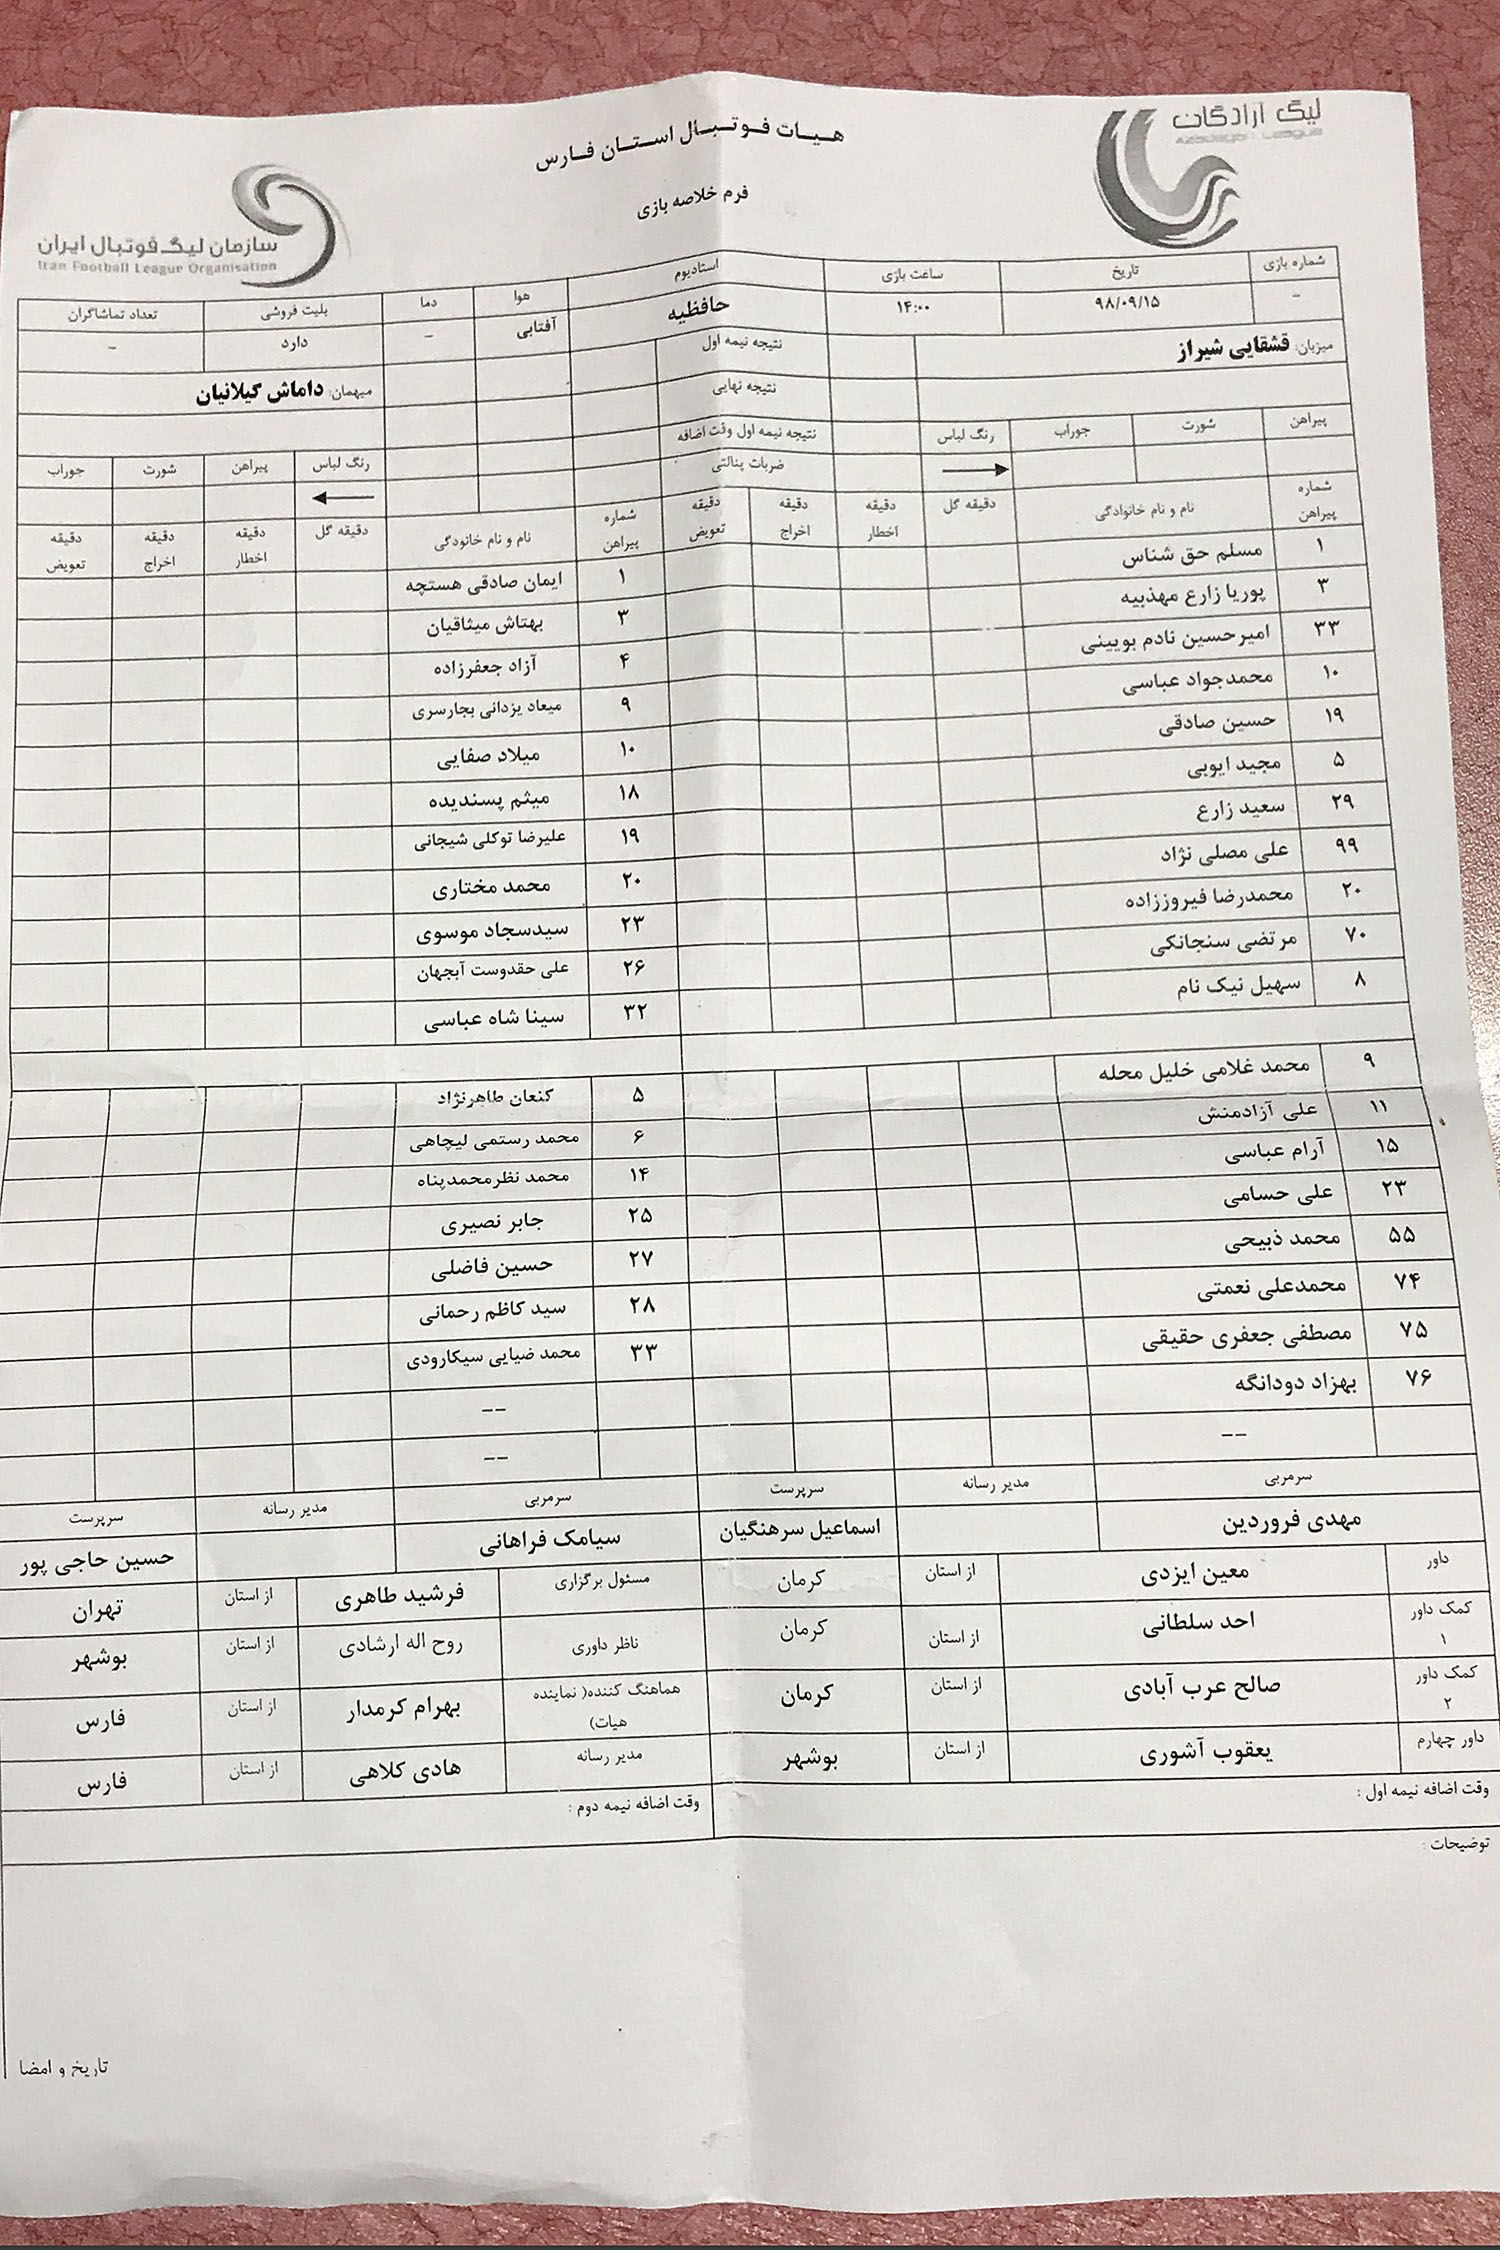 لیگ آزادگان
Azadegan League
هیات فوتبال استان فارس
فرم خلاصه بازی
سازمان لیگ فوتبال ایران
Iran Football League Organisation
شماره بازی تاریخ ساعت بازی استادیوم هوا دما بلیت فروشی تعداد تماشاگران
- ۹۸/۰۹/۱۵ ۱۴:۰۰ حافظیه آفتابی - دارد -
میزبان: قشقایی شیراز نتیجه نیمه اول میهمان: داماش گیلانیان
نتیجه نهایی
پیراهن شورت جوراب رنگ لباس نتیجه نیمه اول وقت اضافه رنگ لباس پیراهن شورت جوراب
ضربات پنالتی
شماره پیراهن نام و نام خانوادگی دقیقه گل دقیقه اخطار دقیقه اخراج دقیقه تعویض شماره پیراهن نام و نام خانودگی دقیقه گل دقیقه اخطار دقیقه اخراج دقیقه تعویض
۱ مسلم حق شناس ۱ ایمان صادقی هستچه
۳ پوریا زارع مهذبیه ۳ بهتاش میثاقیان
۳۳ امیرحسین نادم بویینی ۴ آزاد جعفرزاده
۱۰ محمدجواد عباسی ۹ میعاد یزدانی بجارسری
۱۹ حسین صادقی ۱۰ میلاد صفایی
۵ مجید ایوبی ۱۸ میثم پسندیده
۲۹ سعید زارع ۱۹ علیرضا توکلی شیجانی
۹۹ علی مصلی نژاد ۲۰ محمد مختاری
۲۰ محمدرضا فیروززاده ۲۳ سیدسجاد موسوی
۷۰ مرتضی سنجانکی ۲۶ علی حقدوست آبجهان
۸ سهیل نیک نام ۳۲ سینا شاه عباسی
۹ محمد غلامی خلیل محله ۵ کنعان طاهرنژاد
۱۱ علی آزادمنش ۶ محمد رستمی لیچاهی
۱۵ آرام عباسی ۱۴ محمد نظرمحمدپناه
۲۳ علی حسامی ۲۵ جابر نصیری
۵۵ محمد ذبیحی ۲۷ حسین فاضلی
۷۴ محمدعلی نعمتی ۲۸ سید کاظم رحمانی
۷۵ مصطفی جعفری حقیقی ۳۳ محمد ضیایی سیکارودی
۷۶ بهزاد دودانگه --
-- --
سرمربی مدیر رسانه سرپرست سرمربی مدیر رسانه سرپرست
مهدی فروردین اسماعیل سرهنگیان سیامک فراهانی حسین حاجی پور
داور معین ایزدی از استان کرمان مسئول برگزاری فرشید طاهری از استان تهران
کمک داور ۱ احد سلطانی از استان کرمان ناظر داوری روح اله ارشادی از استان بوشهر
کمک داور ۲ صالح عرب آبادی از استان کرمان هماهنگ کننده( نماینده هیات) بهرام کرمدار از استان فارس
داور چهارم یعقوب آشوری از استان بوشهر مدیر رسانه هادی کلاهی از استان فارس
وقت اضافه نیمه اول : وقت اضافه نیمه دوم :
توضیحات :
تاریخ و امضا